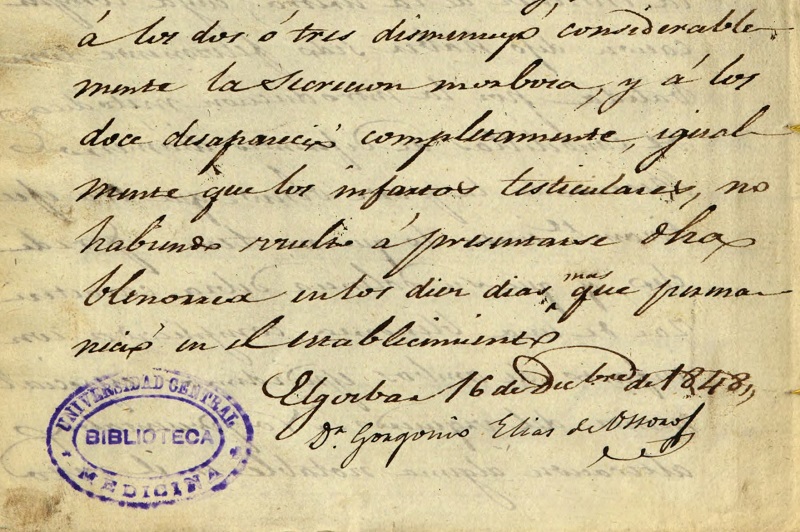 á los dos ó tres disminuyó considerable-
mente la secrecion morbosa, y á los
doce desapareció completamente, igual-
mente que los infartos testiculares, no
habiendo vuelto á presentarse dha
blenorrea en los diez dias mas que perma-
neció en el establecimiento
16 de Diciembre de 1848,,
Dr. Gorgonio Elias de
UNIVERSIDAD CENTRAL
BIBLIOTECA
MEDICINA